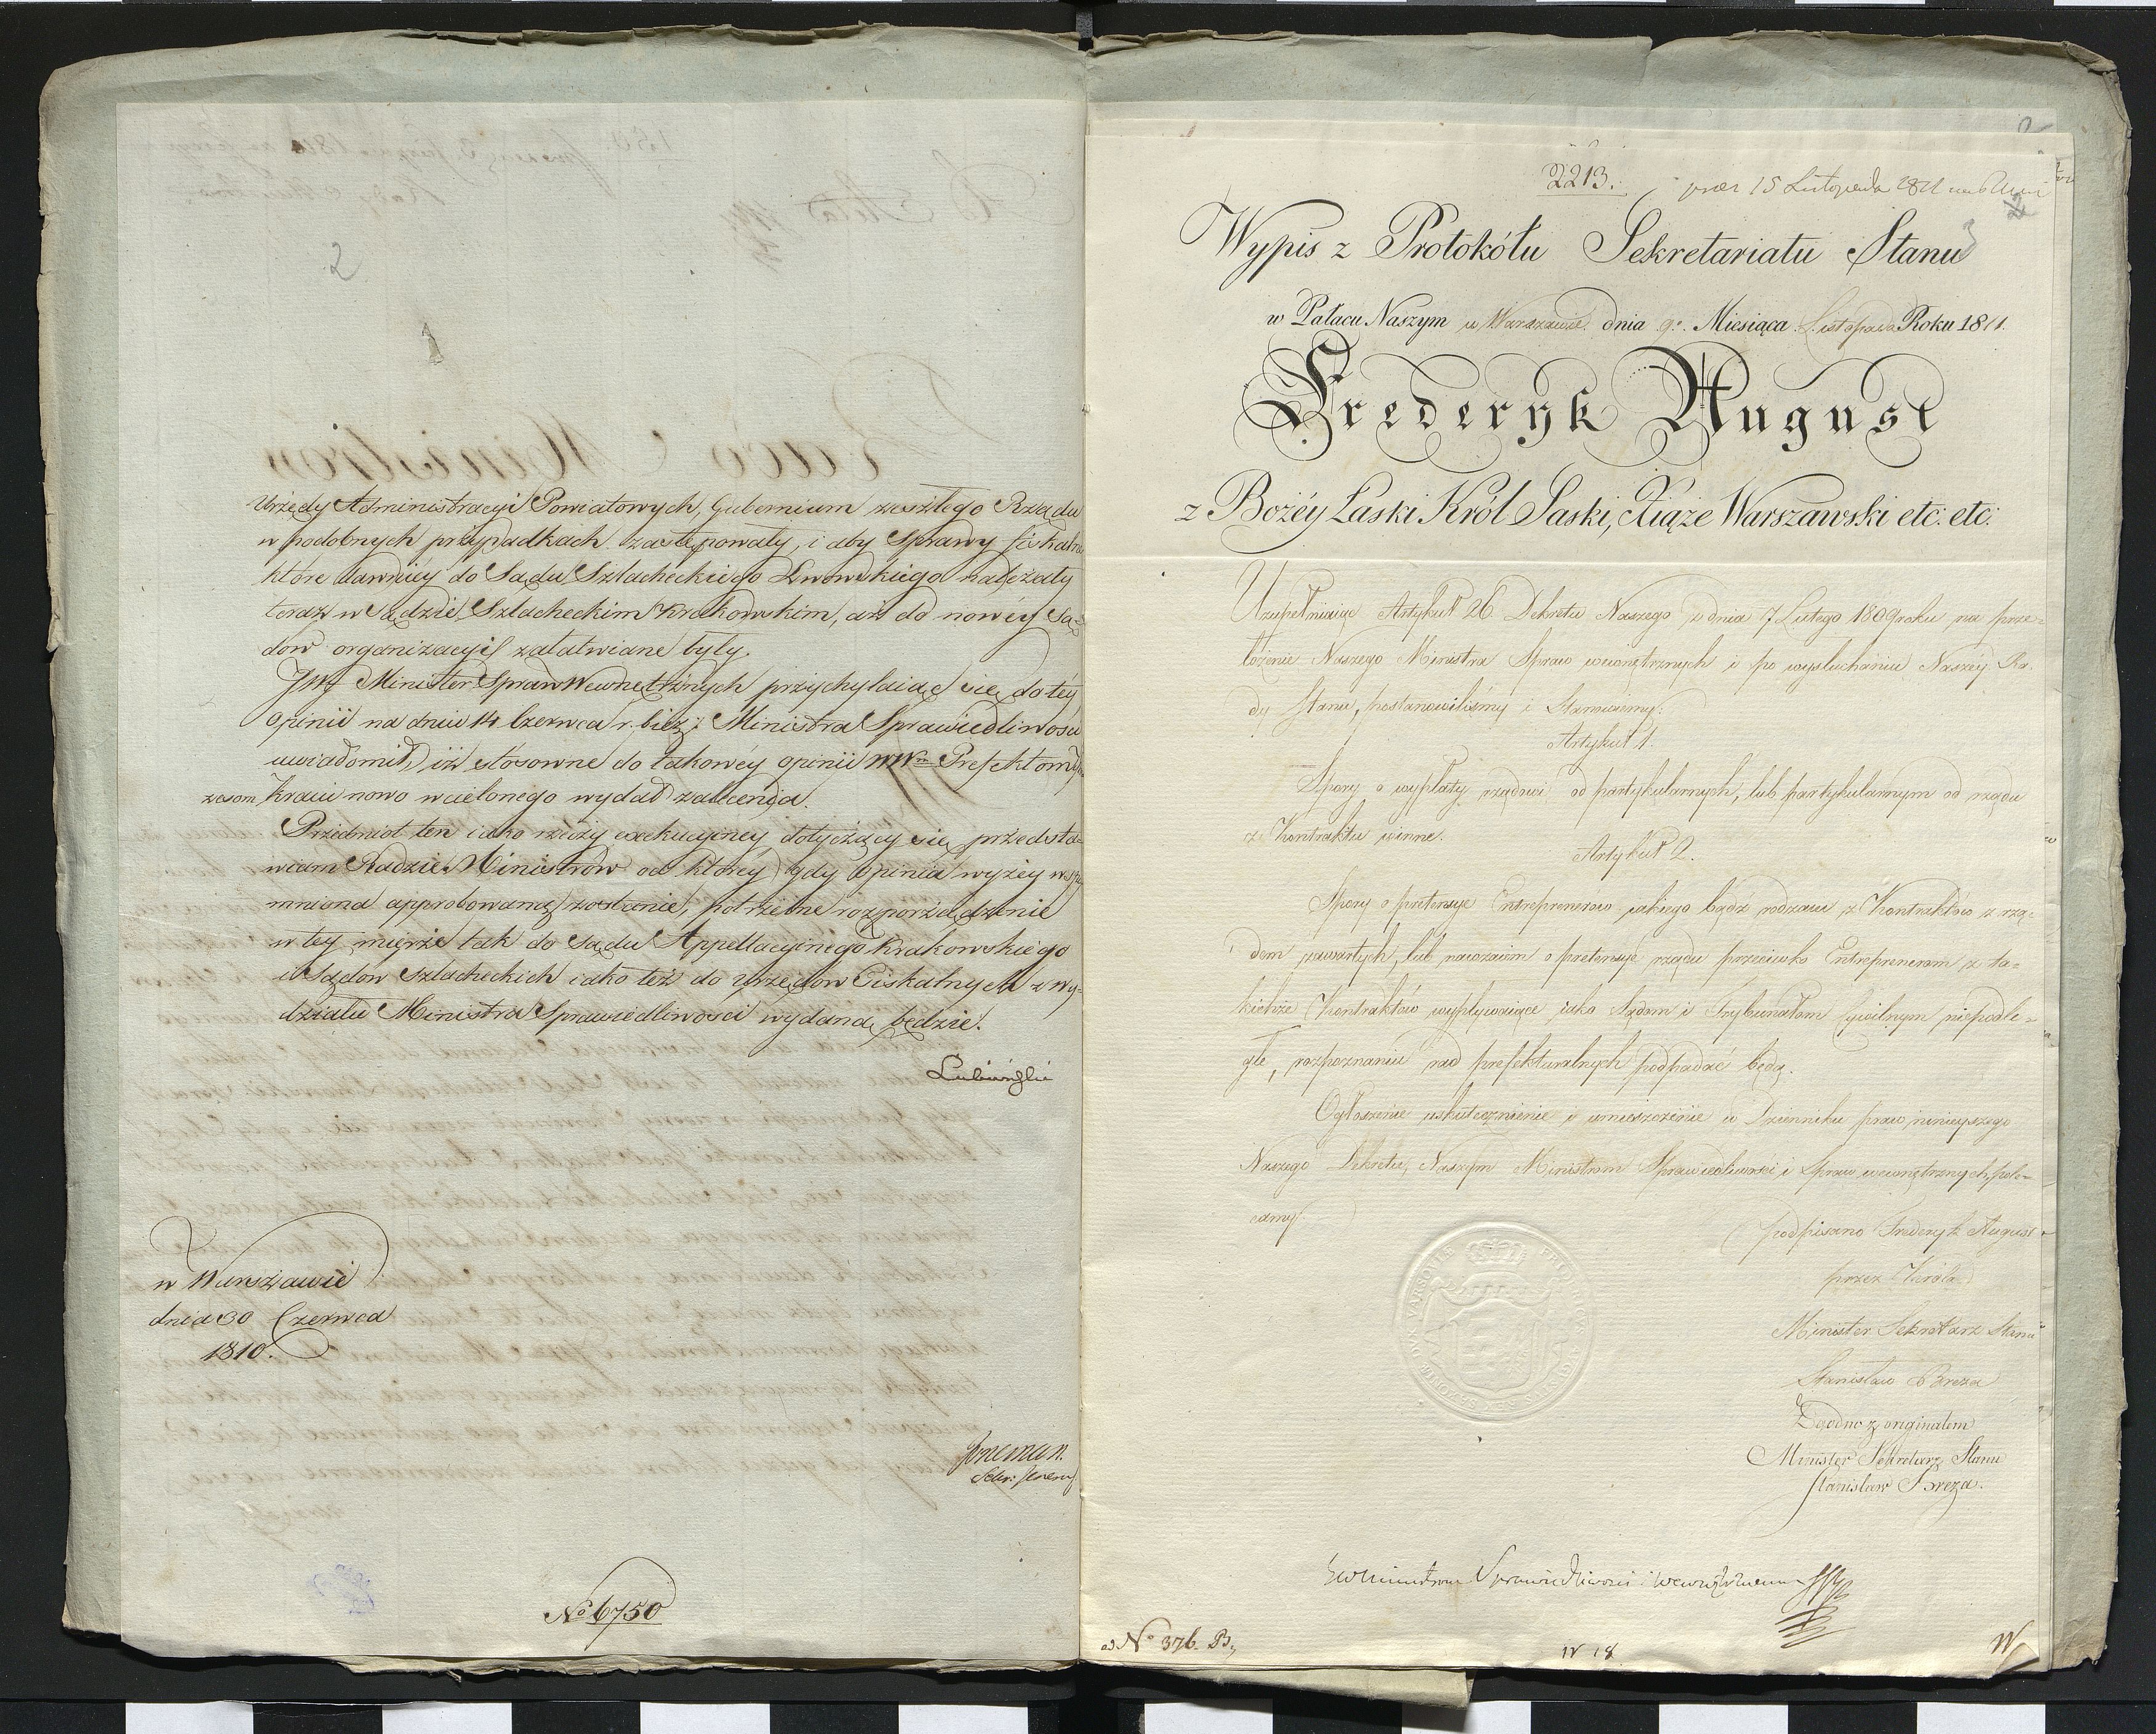 2
Urzędy Administracyi Powiatowych, Gubernium zeszłego Rządu
w podobnych przypadkach zastępowały, i aby Sprawy fiskalne
które dawniéy do Sądu Szlacheckiego Lwowskiego należały
teraz w Sądzie Szlacheckim Krakowskim, aż do nowéy Są-
dów organizacyi załatwiane były.
JW Minister Spraw Wewnętrznych przychylaiąc się do téy
opinii na dniu 14 Czerwca r. bież: Ministra Sprawiedliwości
uwiadomił, iż stósowne do takowéy opinii WWm Prefektom
Kraiu nowo wcielonego wydał zalecenia.
Przedmiot ten iako rzeczy exekucyiney dotyczący się przedsta-
wiam Radzie Ministrów od któréy gdy opinia wyżéy wspo
mniona approbowaną zostanie, potrzebne rozporządzenie
w téy mierze tak do Sądu Appellacyinego Krakowskiego
i Sądów Szlacheckich iako też do Urzędów Fiskalnych z wy-
działu Ministra Sprawiedliwości wydane będzie.
Łubieński
w Warszawie
dnia 30 Czerwca
1810.
Sekr: Jener:
No 6750
2213.
15 Listopada 1811
2
Wypis z Protokółu Sekretariatu Stanu
w Pałacu Naszym w Warszawie dnia 9o. Miesiąca Listopada Roku 1811.
Fryderyk August
z Bożéy Łaski Król Saski, Xiąże Warszawski etc: etc:
Uzupełniaiąc Artykuł 26 Dekretu Naszego z dnia 7 Lutego 1809 roku na prze-
łożenie Naszego Ministra Spraw wewnętrznych i po wysłuchaniu Naszéy Ra-
dy Stanu, postanowiliśmy i Stanowiemy:
Artykuł 1.
Spory o wypłaty rządowi od partykularnych, lub partykularnym od rządu
z Kontraktu winne.
Artykuł 2.
Spory o pretensye Entreprenerów iakiego bądź rodzaiu z Kontraktów z rzą-
dem zawartych, lub nawzaiem o pretensye rządu przeciwko Entreprenerom z ta-
kichże Kontraktów wypływaiące iako Sądom i Trybunałom Cywilnym niepodle-
głe, rozpoznaniu rad prefekturalnych podpadać będą.
Ogłoszenie uskutecznienie i umieszczenie w Dzienniku praw ninieyszego
Naszego Dekretu, Naszym Ministrom Sprawiedliwości i Spraw wewnętrznych, pole-
camy.
podpisano Fryderyk August
przez Króla
Minister Sekretarz Stanu
Stanisław Breza
Zgodno z originałem
Minister Sekretarz Stanu
Stanisław Breza.
Sprawiedliwości i
ad No 376. B.
N 18